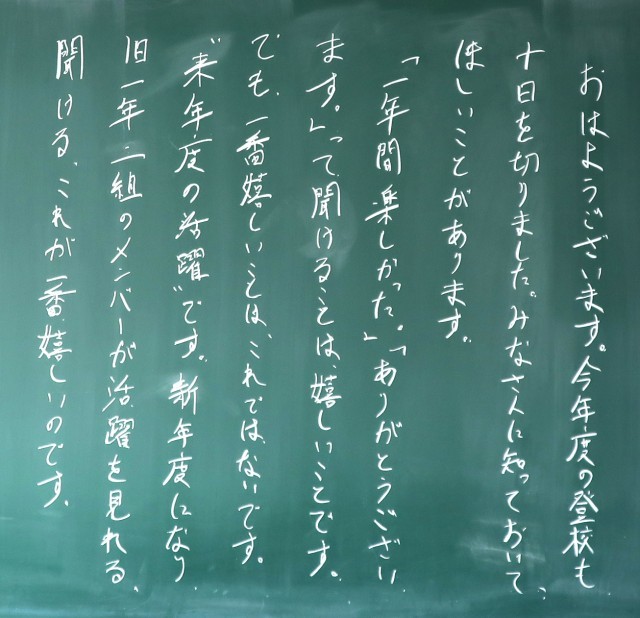 おはようございます。今年度の登校も
十日を切りました。みなさんに知っておいて、
ほしいことがあります。
「一年間楽しかった。」「ありがとうござい
ます。」って聞けることは、嬉しいことです。
でも、一番嬉しいことは、これではないです。
“来年度の活躍”です。新年度になり
旧一年二組のメンバーが活躍を見れる、
聞ける、これが一番嬉しいのです。